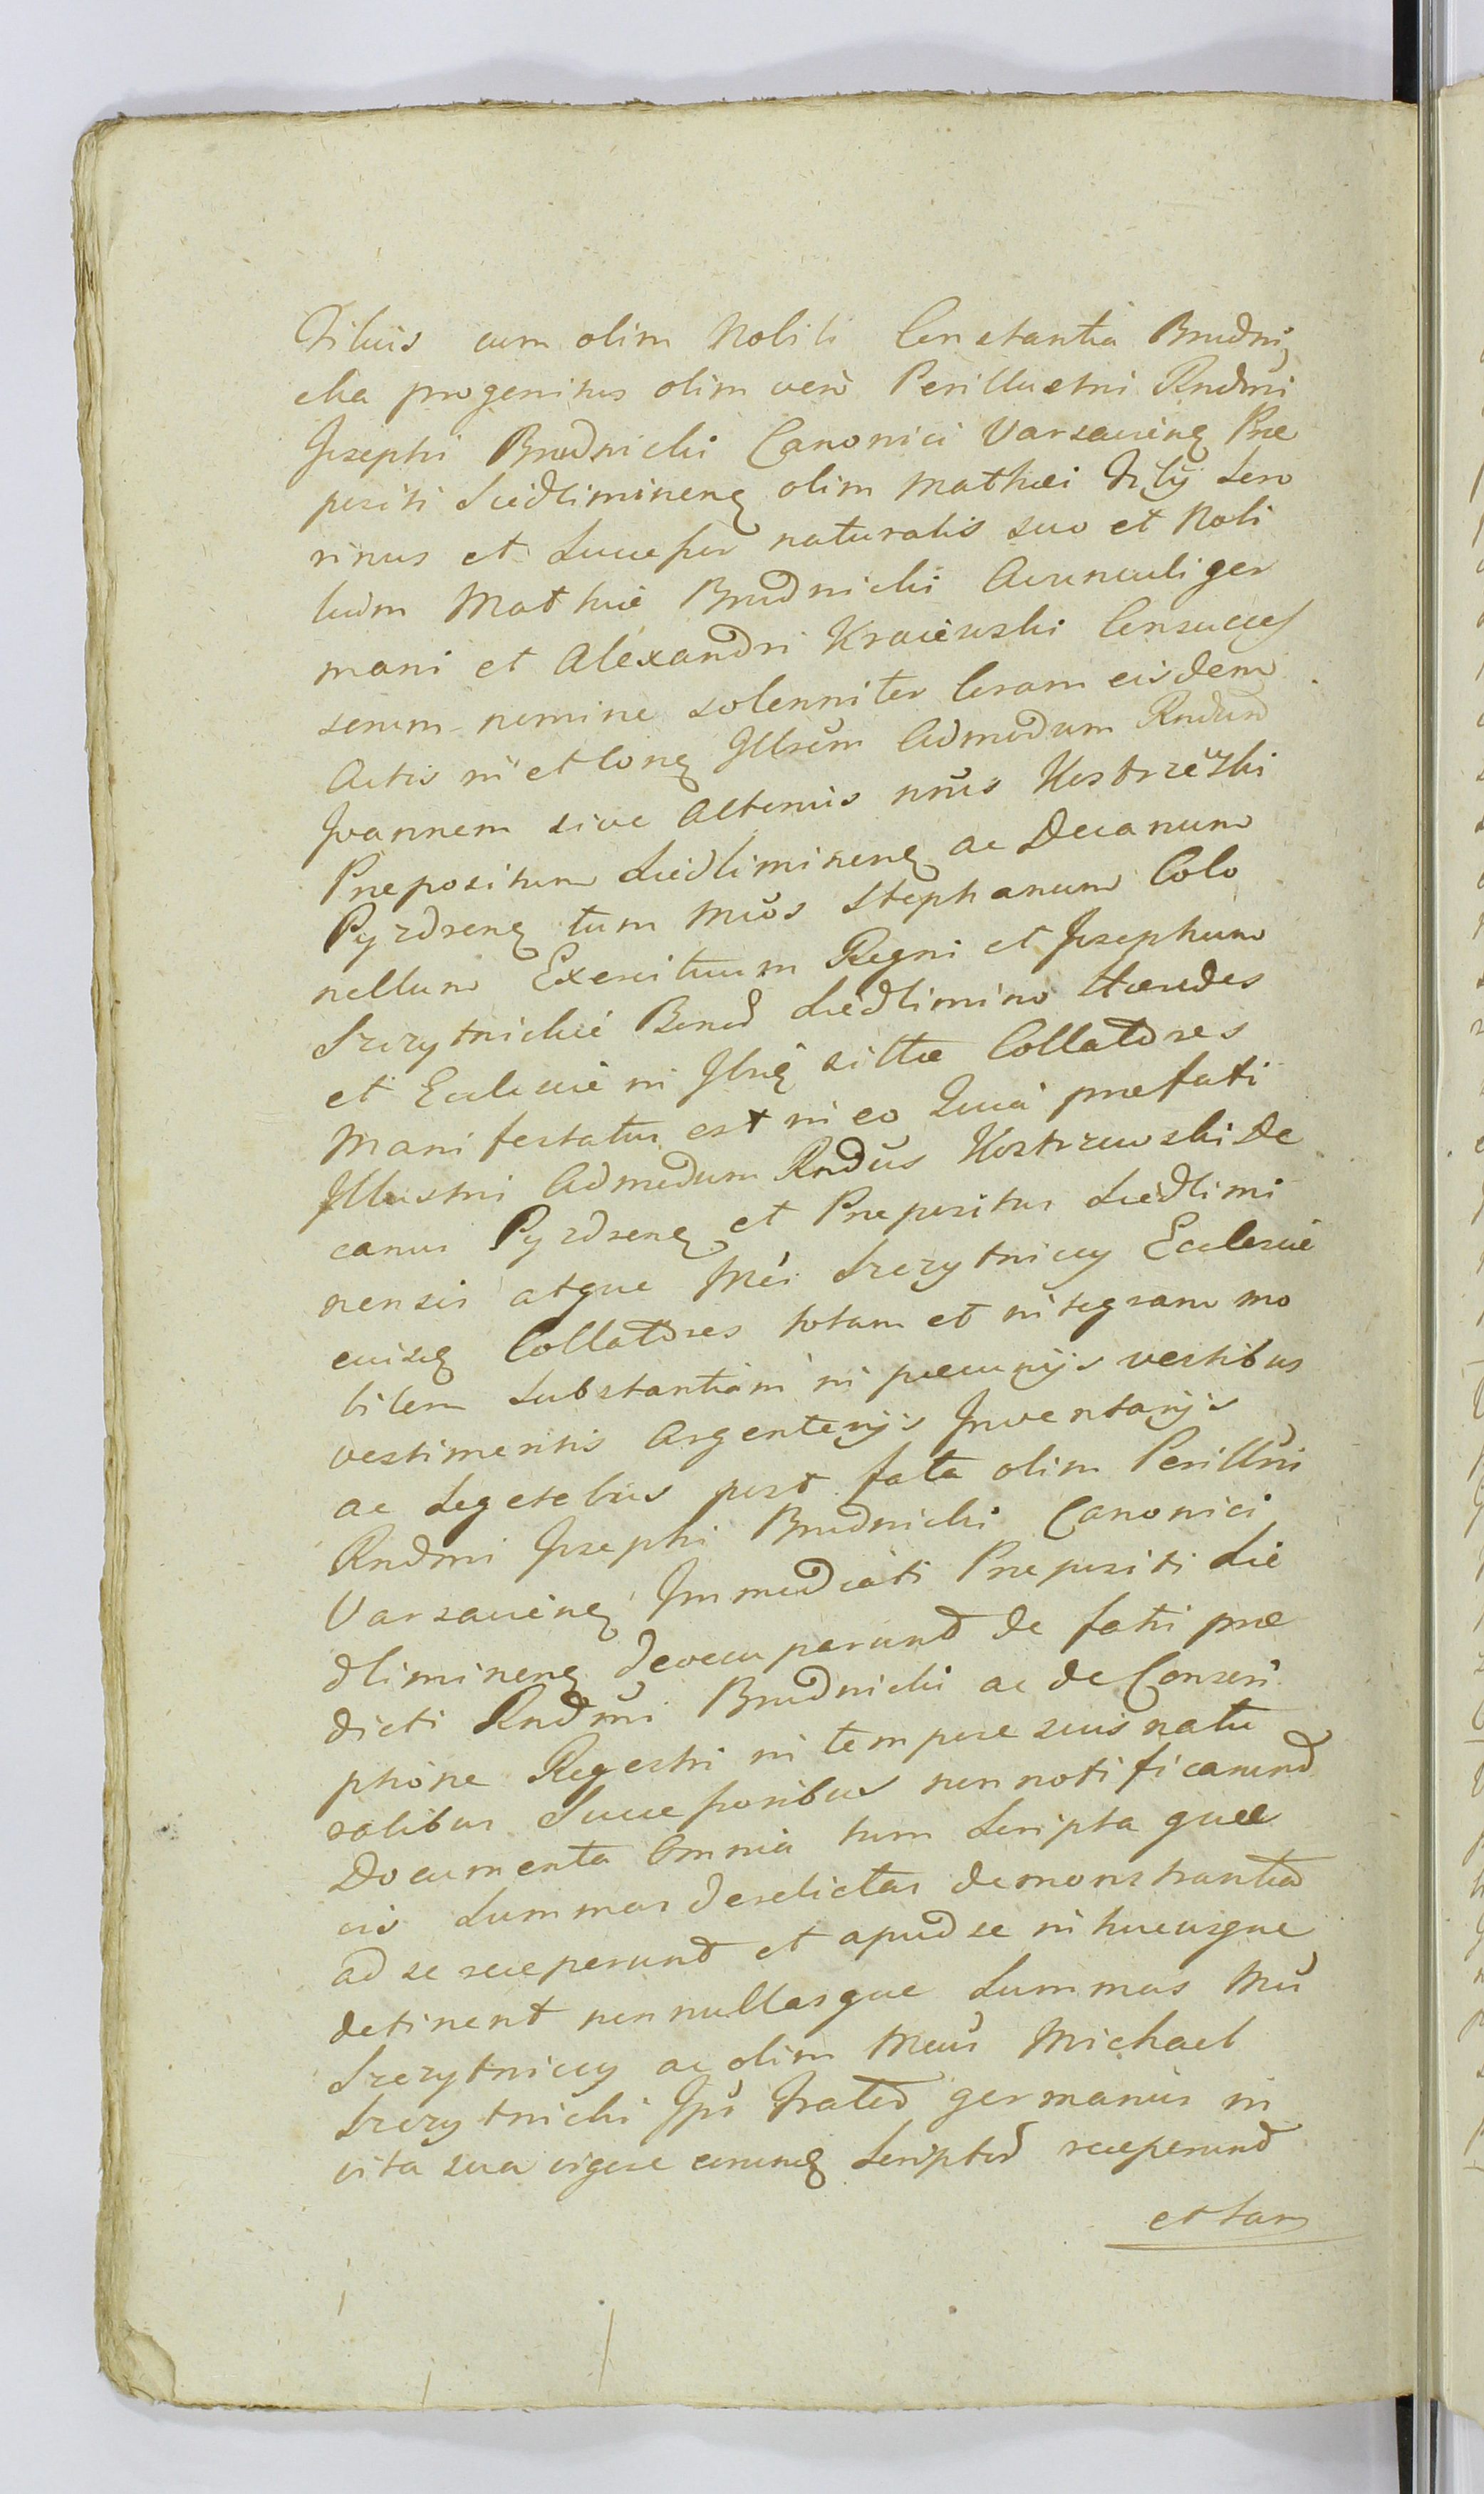 Filius cum olim Nobili Constantia Brudni
cka progenitus olim vero Perillustri Rndmi
Josephi Brudnicki Canonici Varsavienẹ Præ
positi Siedliminenẹ olim Mathæi Filij Soro
rinus et Successor naturalis suo et Nobi
lium Mathiæ Brudnicki Avunculi ger
mani et Alexandri Kraiewski Consucces
sorum nomine solenniter Coram eisdem
Actis in et Conẹ Illrem Admodum Rndum
Joannem sive alterius nnis Kostrzewski
Præpositum Siedliminenẹ ac Decanum
Pyzdrenẹ tum Mcos Stephanum Colo
nellum Exercituum Regni et Josephum
Szczytnickie Bonor Siedlimino Hæredes
et Ecclesiæ in Ibnẹ sittæ Collatores
Manifestatus est in eo Quia præfati
Illustri Admodum Rndus Kostrzewski De
canus Pyzdrenẹ et Præpositus Siedlimi
nensis atque Mci Szczytniccy Ecclesiæ
eiusẹ Collatores totam et integram mo
bilem Substantiam in pecunijs vestibus
vestimentis Argenterijs Inventarijs
ac Segetebus post fata olim Perillris
Rndmi Josephi Brudnicki Canonici
Varsavienẹ Immediati Præpositi Sie
dliminenẹ derecuparunt de fatis præ
dicti Rndmi Brudnicki ac de Conscri
ptione Regestri in tempore suis natu
ralibus Successoribus non notificarunt
Documenta Omnia tum Scripta quæ
vis Summas derelictas demonstrantia
ad se receperunt et apud se in hucusque
detinent nonnullasque Summas Mci
Szczytniccy ac olim Mcus Michael
Szczytnicki Ipso Frater germanus in
vita sua vigore eorunẹ Scriptor receperunt
et tam